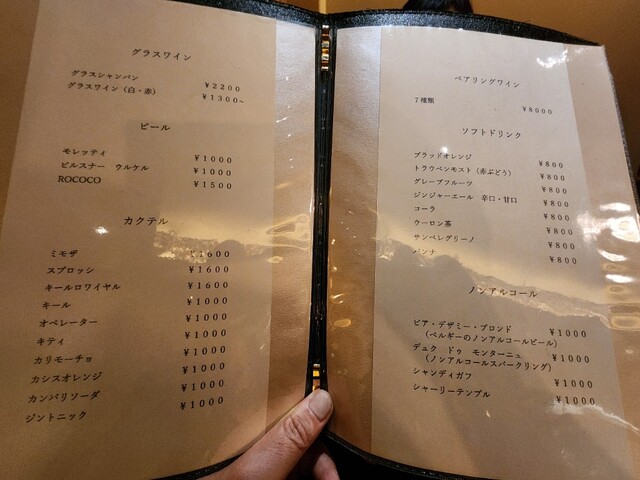 グラスワイン
グラスシャンパン ¥2200
グラスワイン（白・赤） ¥1300~
ビール
モレッティ ¥1000
ピルスナー ウルケル ¥1000
ROCOCO ¥1500
カクテル
ミモザ ¥1600
スプロッシ ¥1600
キールロワイヤル ¥1600
キール ¥1000
オペレーター ¥1000
キティ ¥1000
カリモーチョ ¥1000
カシスオレンジ ¥1000
カンパリソーダ ¥1000
ジントニック ¥1000
ペアリングワイン
７種類 ¥8000
ソフトドリンク
ブラッドオレンジ ¥800
トラウベンモスト（赤ぶどう） ¥800
グレープフルーツ ¥800
ジンジャーエール 辛口・甘口 ¥800
コーラ ¥800
ウーロン茶 ¥800
サンペレグリーノ ¥800
パンナ ¥800
ノンアルコール
ピア・デザミー・ブロンド ¥1000
（ベルギーのノンアルコールビール）
デュク ドゥ モンターニュ ¥1000
（ノンアルコールスパークリング）
シャンディガフ ¥1000
シャーリーテンプル ¥1000